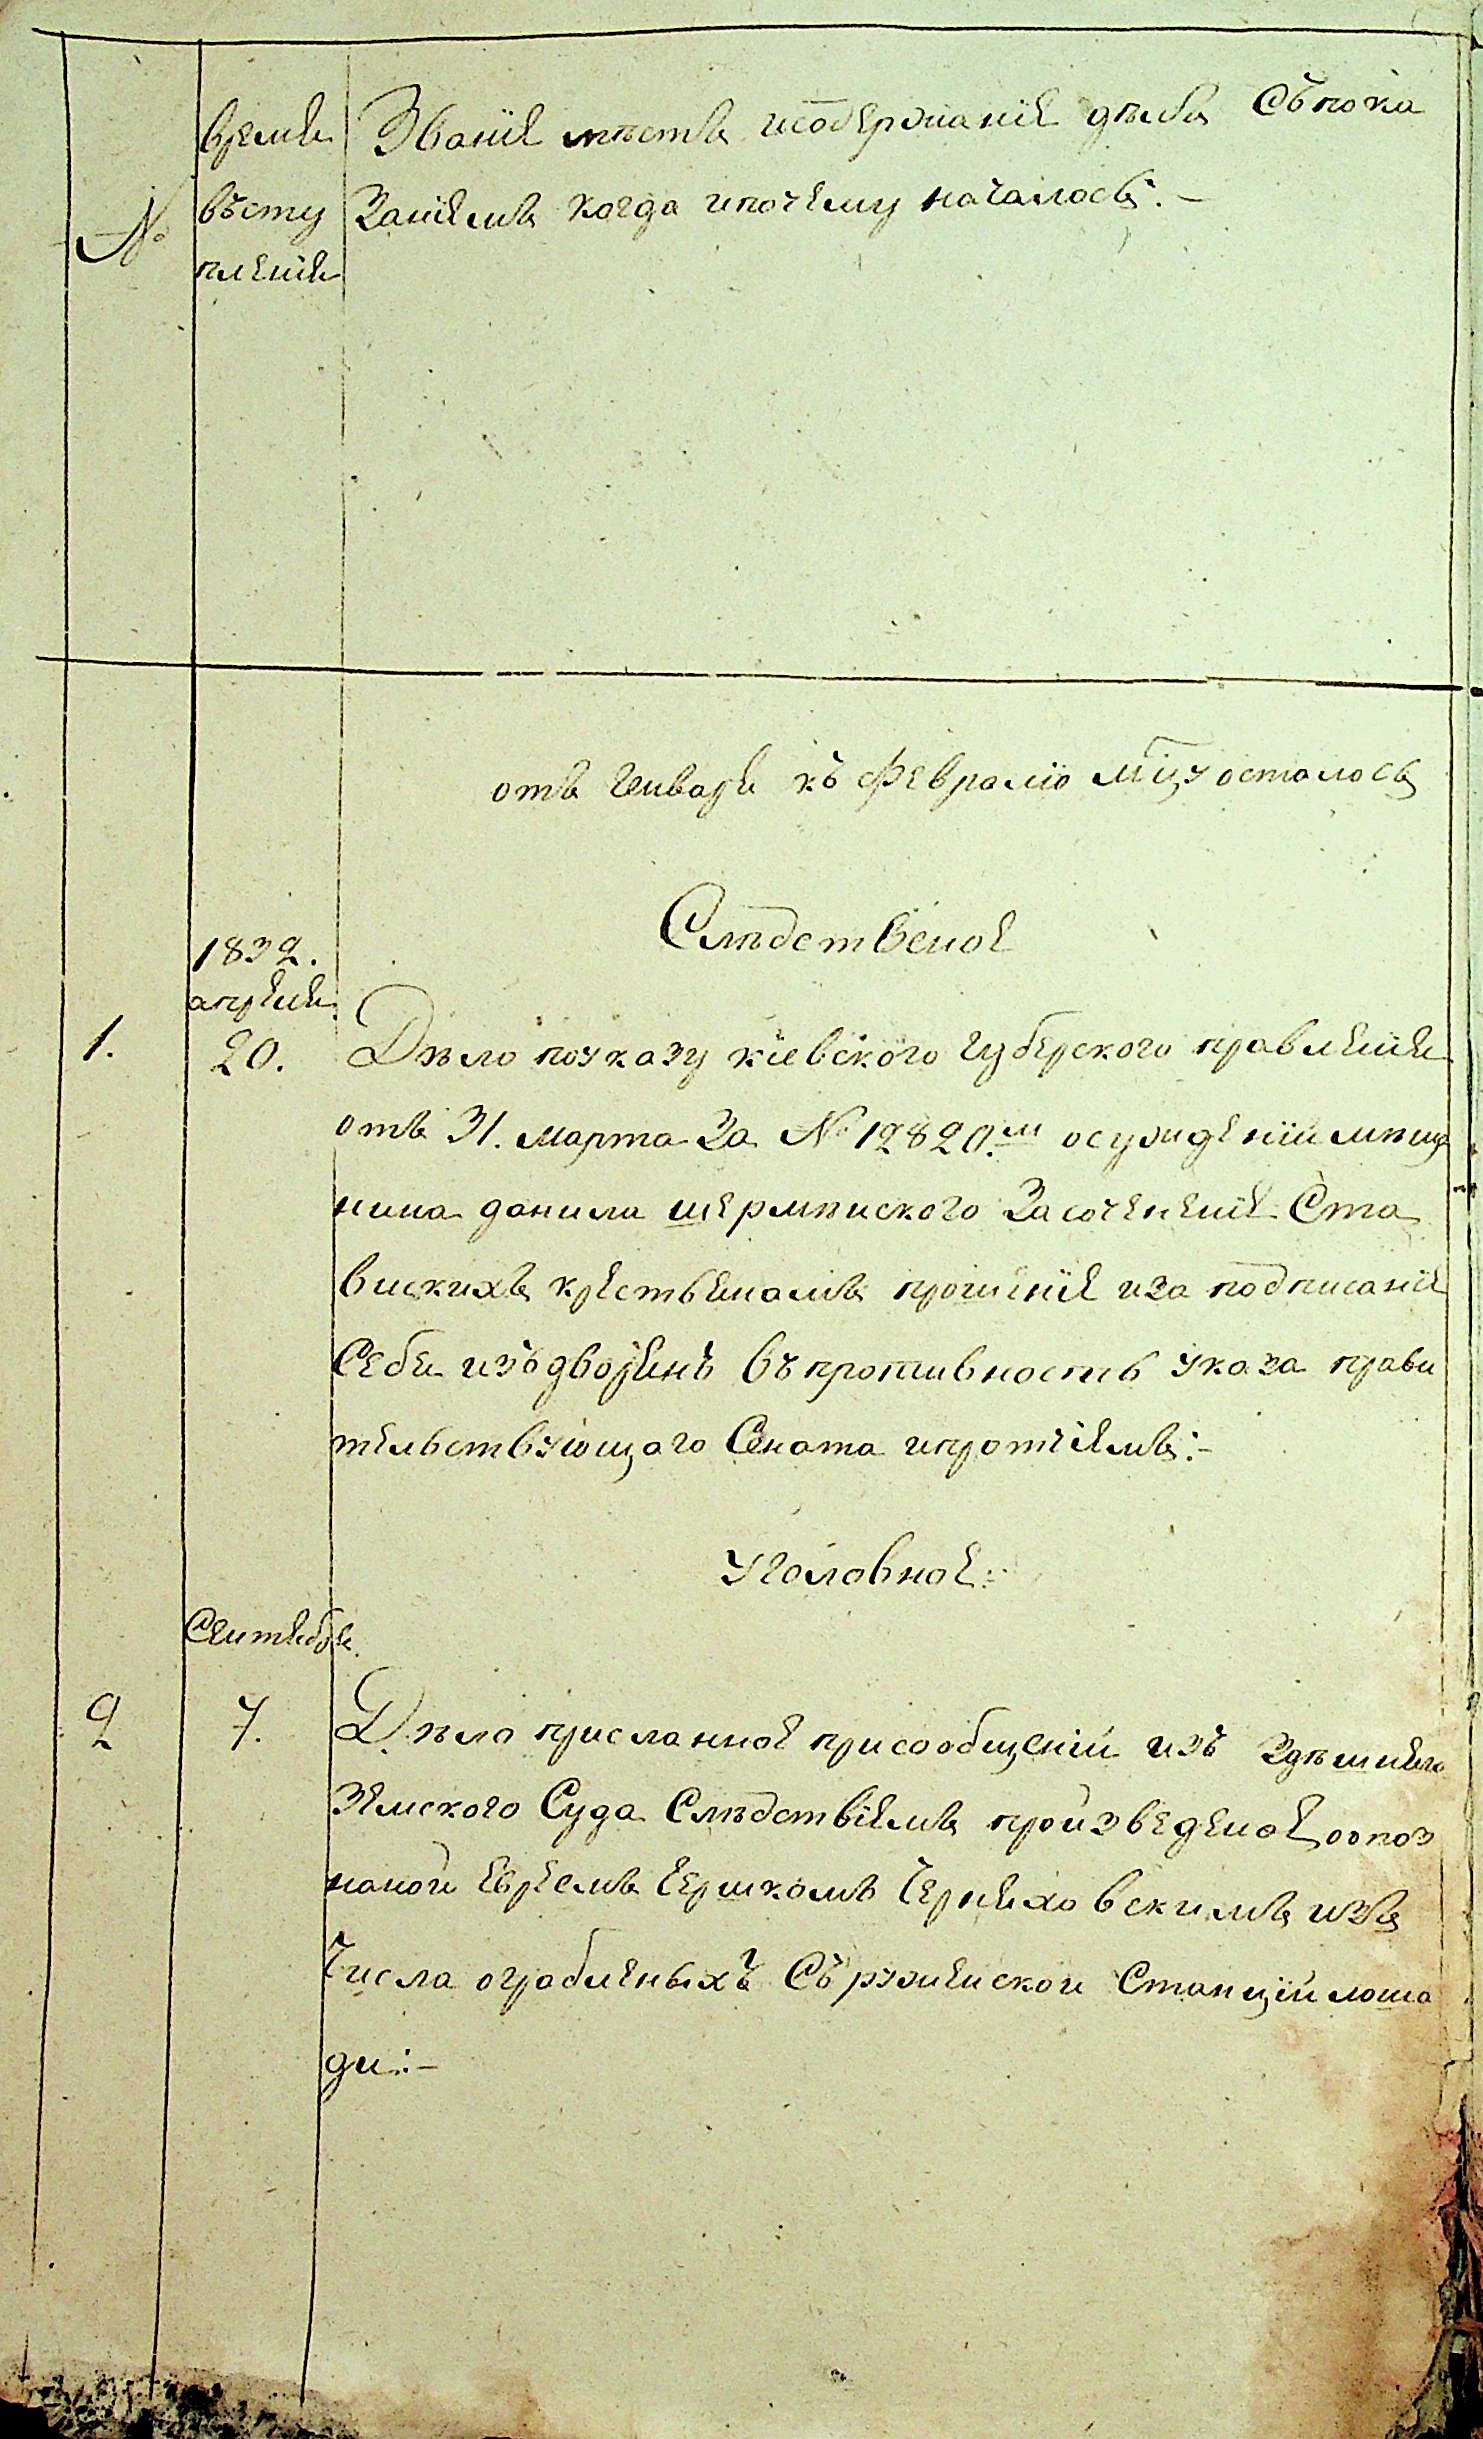 №
время
въсту
пления
Званіе мѣстъ исодержаніе дѣлъ Съпока
Заніемъ когда ипочему началось:—
отъ Генваря къ Февралю мцу осталось
Слѣдственое
1.
1832.
апреля
20.
Дѣло поуказу кіевского губерского правленія
отъ 31. марта За № 12820.м осужденіи мѣща
нина данила Засоченение Ста
вискихъ крестьянамъ прошеніе иза подписаніе
Себя изъдворянъ въпротивность указа прави
тельствующаго Сената ипротчіемъ:—
Уголовное:
Сентября.
2
7.
Дѣло присланное присообщеніи изъ Здѣшнего
Земского Суда Слѣдствіемъ произведеное оопоз
наной Евреемъ Гершкомъ Черняховскимъ изъ
Числа ограбленыхъ Съружинской Станціи лоша
ди:—